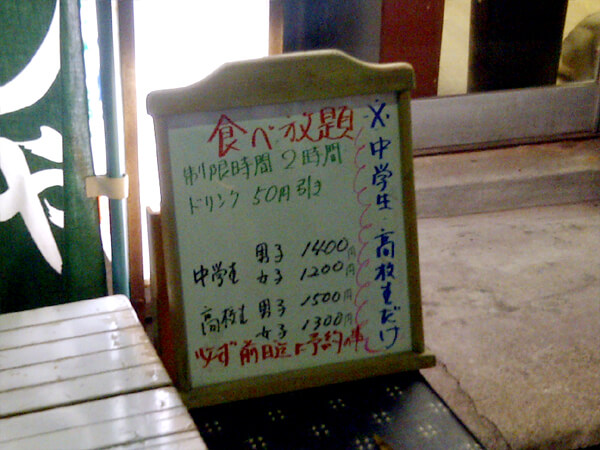 食べ放題
制限時間 2時間
ドリンク 50円引き
中学生 男子 1400円
女子 1200円
高校生 男子 1500円
女子 1300円
必ず前日迄に予約
※中学生・高校生だけ